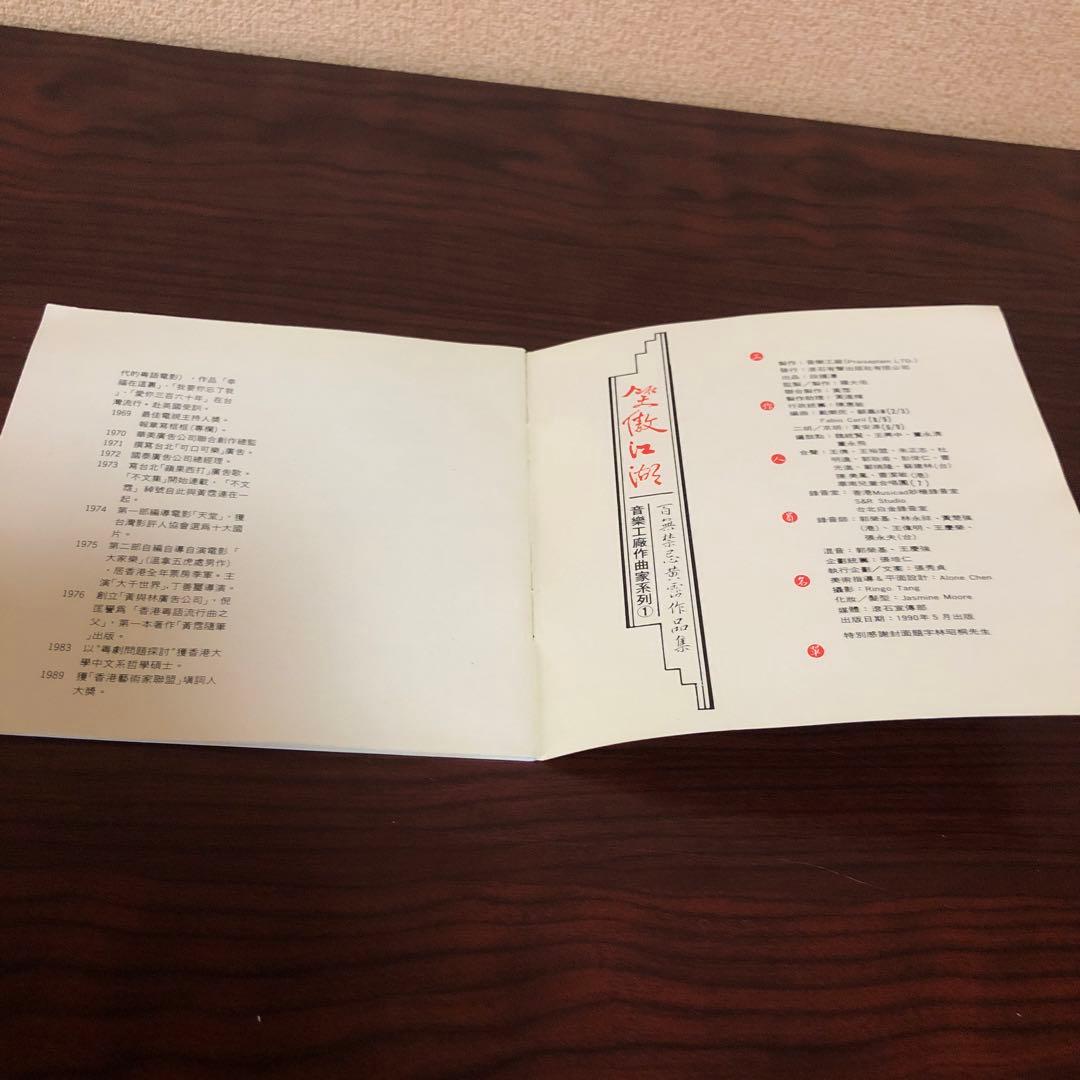 代的粵語電影），作品「幸
福在這裏」，「我要你忘了我
」，「愛你三百六十年」在台
灣流行。赴英國受訓。
1969 最佳電視主持人獎。
報章寫框框（專欄）。
1970 華美廣告公司聯合創作總監
1971 撰寫台北「可口可樂」廣告。
1972 國泰廣告公司總經理。
1973 寫台北「蘋果西打」廣告歌。
「不文集」開始連載，「不文
霑」綽號自此與黃霑連在一
起。
1974 第一部編導電影「天堂」，獲
台灣影評人協會選爲十大國
片。
1975 第二部自編自導自演電影「
大家樂」（溫拿五虎處男作）
，居香港全年票房季軍。主
演「大千世界」，丁善璽導演。
1976 創立「黃與林廣告公司」，倪
匡譽爲「香港粵語流行曲之
父」，第一本著作「黃霑隨筆
」出版。
1983 以“粵劇問題探討”獲香港大
學中文系哲學碩士。
1989 獲「香港藝術家聯盟」塡詞人
大獎。
笑傲江湖
百無禁忌黃霑作品集
音樂工廠作曲家系列①
工作人員名單
製作：音樂工廠
發行：滾石有聲出版社有限公司
出品：段鍾潭
監製／製作：羅大佑
聯合製作：黃霑
製作助理：黃進輝
行政統籌：陳惠敏
編曲：戴樂民、顧嘉煇
二胡／京胡：黃安源
合聲：
華南兒童合唱團(7)
錄音室：香港Musicad妙種錄音室
S&R Studio
台北白金錄音室
錄音師：郭榮基、林永祥、黃楚強
(港)、王偉明、王慶榮、
張永夫(台)
混音：郭榮基、王慶強
企劃統籌：張培仁
執行企劃／文案：張秀貞
美術指導＆平面設計：Alone Chen
攝影：Ringo Tang
化妝／髮型：Jasmine Moore
媒體：滾石宣傳部
出版日期：1990年5月出版
特別感謝封面題字林昭桐先生